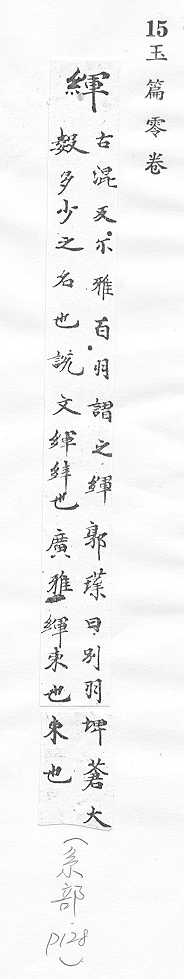 15玉篇零卷
緷
古混反尒雅百羽謂之緷郭璞曰別羽
數多少之名也說文緷緯也廣雅緷束也
埤蒼大
束也
(系部 p128)